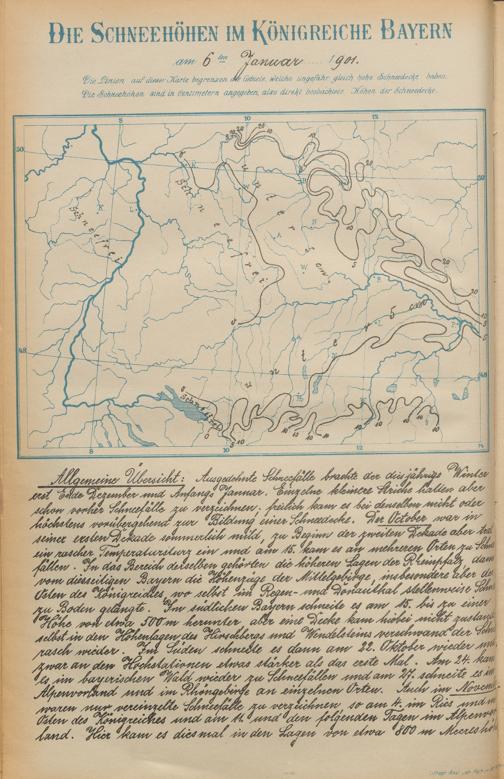 DIE SCHNEEHÖHEN IM KÖNIGREICHE BAYERN
am 6ten Januar 1901.
Die Linien auf dieser Karte begrenzen die Gebiete, welche ungefähr gleich hohe Schneedecke haben.
Die Schneehöhen sind in Centimetern angegeben, also direkt beobachtete Höhen der Schneedecke.
Schneefrei
Schneefrei
unter 5 cm
unter 5 cm
Schneefrei
Allgemeine Übersicht: Ausgedehnte Schneefälle brachte der diesjährige Winter
erst Ende Dezember und Anfang Januar. Einzelne kleinere Striche hatten aber
schon vorher Schneefälle zu verzeichnen; freilich kam es bei denselben nicht oder
höchstens vorübergehend zur Bildung einer Schneedecke. Der October war in
seiner ersten Dekade sommerlich mild, zu Beginn der zweiten Dekade aber
ein rascher Temperatursturz ein und am 15. kam es an mehreren Orten zu
fällen. In das Bereich derselben gehörten die höheren Lagen der Rheinpfalz, dann
vom diesseitigen Bayern die Höhenzüge der Mittelgebirge, insbesondere aber
Osten des Königreiches, wo selbst im Regen- und Donauthal stellenweise
zu Boden gelangte. Im südlichen Bayern schneite es am 15. bis zu einer
Höhe von etwa 500 m herunter, aber eine Decke kam hiebei nicht zustande
selbst in den Höhenlagen des Hirschbergs und Wendelsteins verschwand der
rasch wieder. Im Süden schneite es dann am 22. Oktober wieder und
zwar an den Hochstationen etwas stärker als das erste Mal. Am 24. kam
es im bayerischen Wald wieder zu Schneefällen und am 27. schneite es im
Alpenvorland und im Rhöngebirge an einzelnen Orten. Auch im Novem-
waren nur vereinzelte Schneefälle zu verzeichnen so am 4. im Ries und
Osten des Königreiches und am 14. und den folgenden Tagen im Alpenvor-
land. Hier kam es diesmal in den Lagen von etwa 800 m